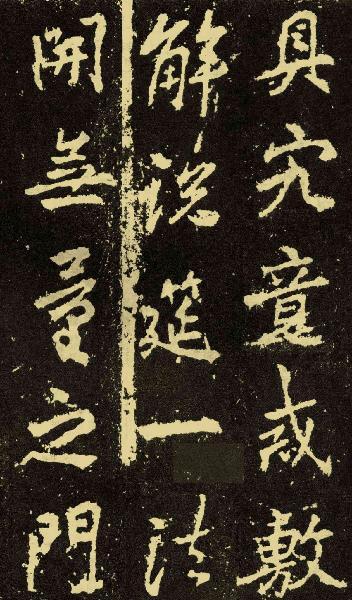 具究意或敷
解說筵一法
開無量之門